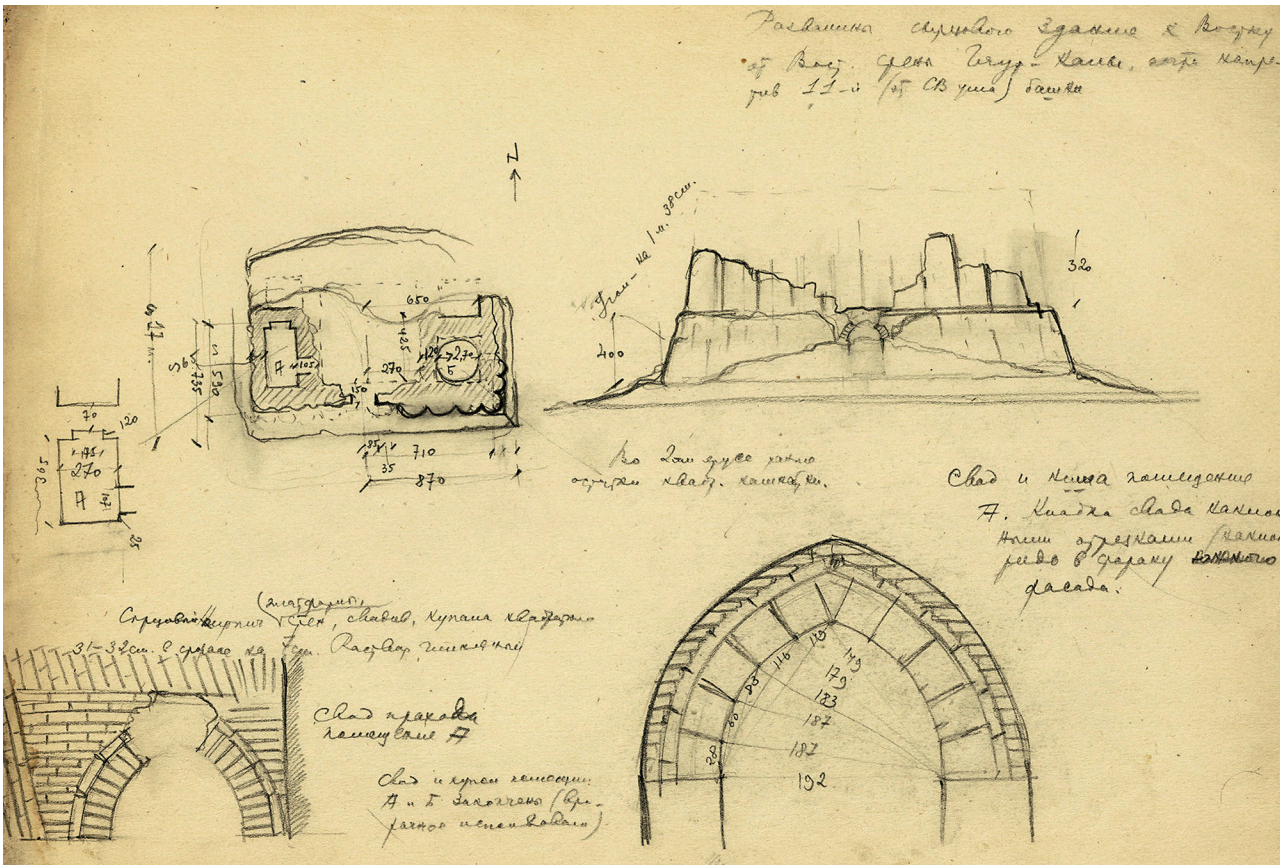 Развалины сырцового здание к Востоку
от Вост. стены Гяур-Калы, почти напро-
тив 11-й (от СВ угла) башни
Угол - на 1 м. 38 см.
320
400
650
425
120
2,70
Б
270
150
A
105
590
735
17 м.
35
710
35
870
70
120
175
270
A
107
25
Во 2ом ярусе
остатки квад.
Свод и ниша помещение
A. Кладка свода наклон-
ными отрезками (наклон
фасада.
(платформы,
Сырцовый кирпич стен, сводов, купола квадратный
31-32 см. в среднем на 7 см. Раствор глиняный
Свод прохода
помещение A
Свод и купол помещени
A и Б закопчены (вто-
ричное использован)
28
60
83
116
149
149
179
183
187
187
192